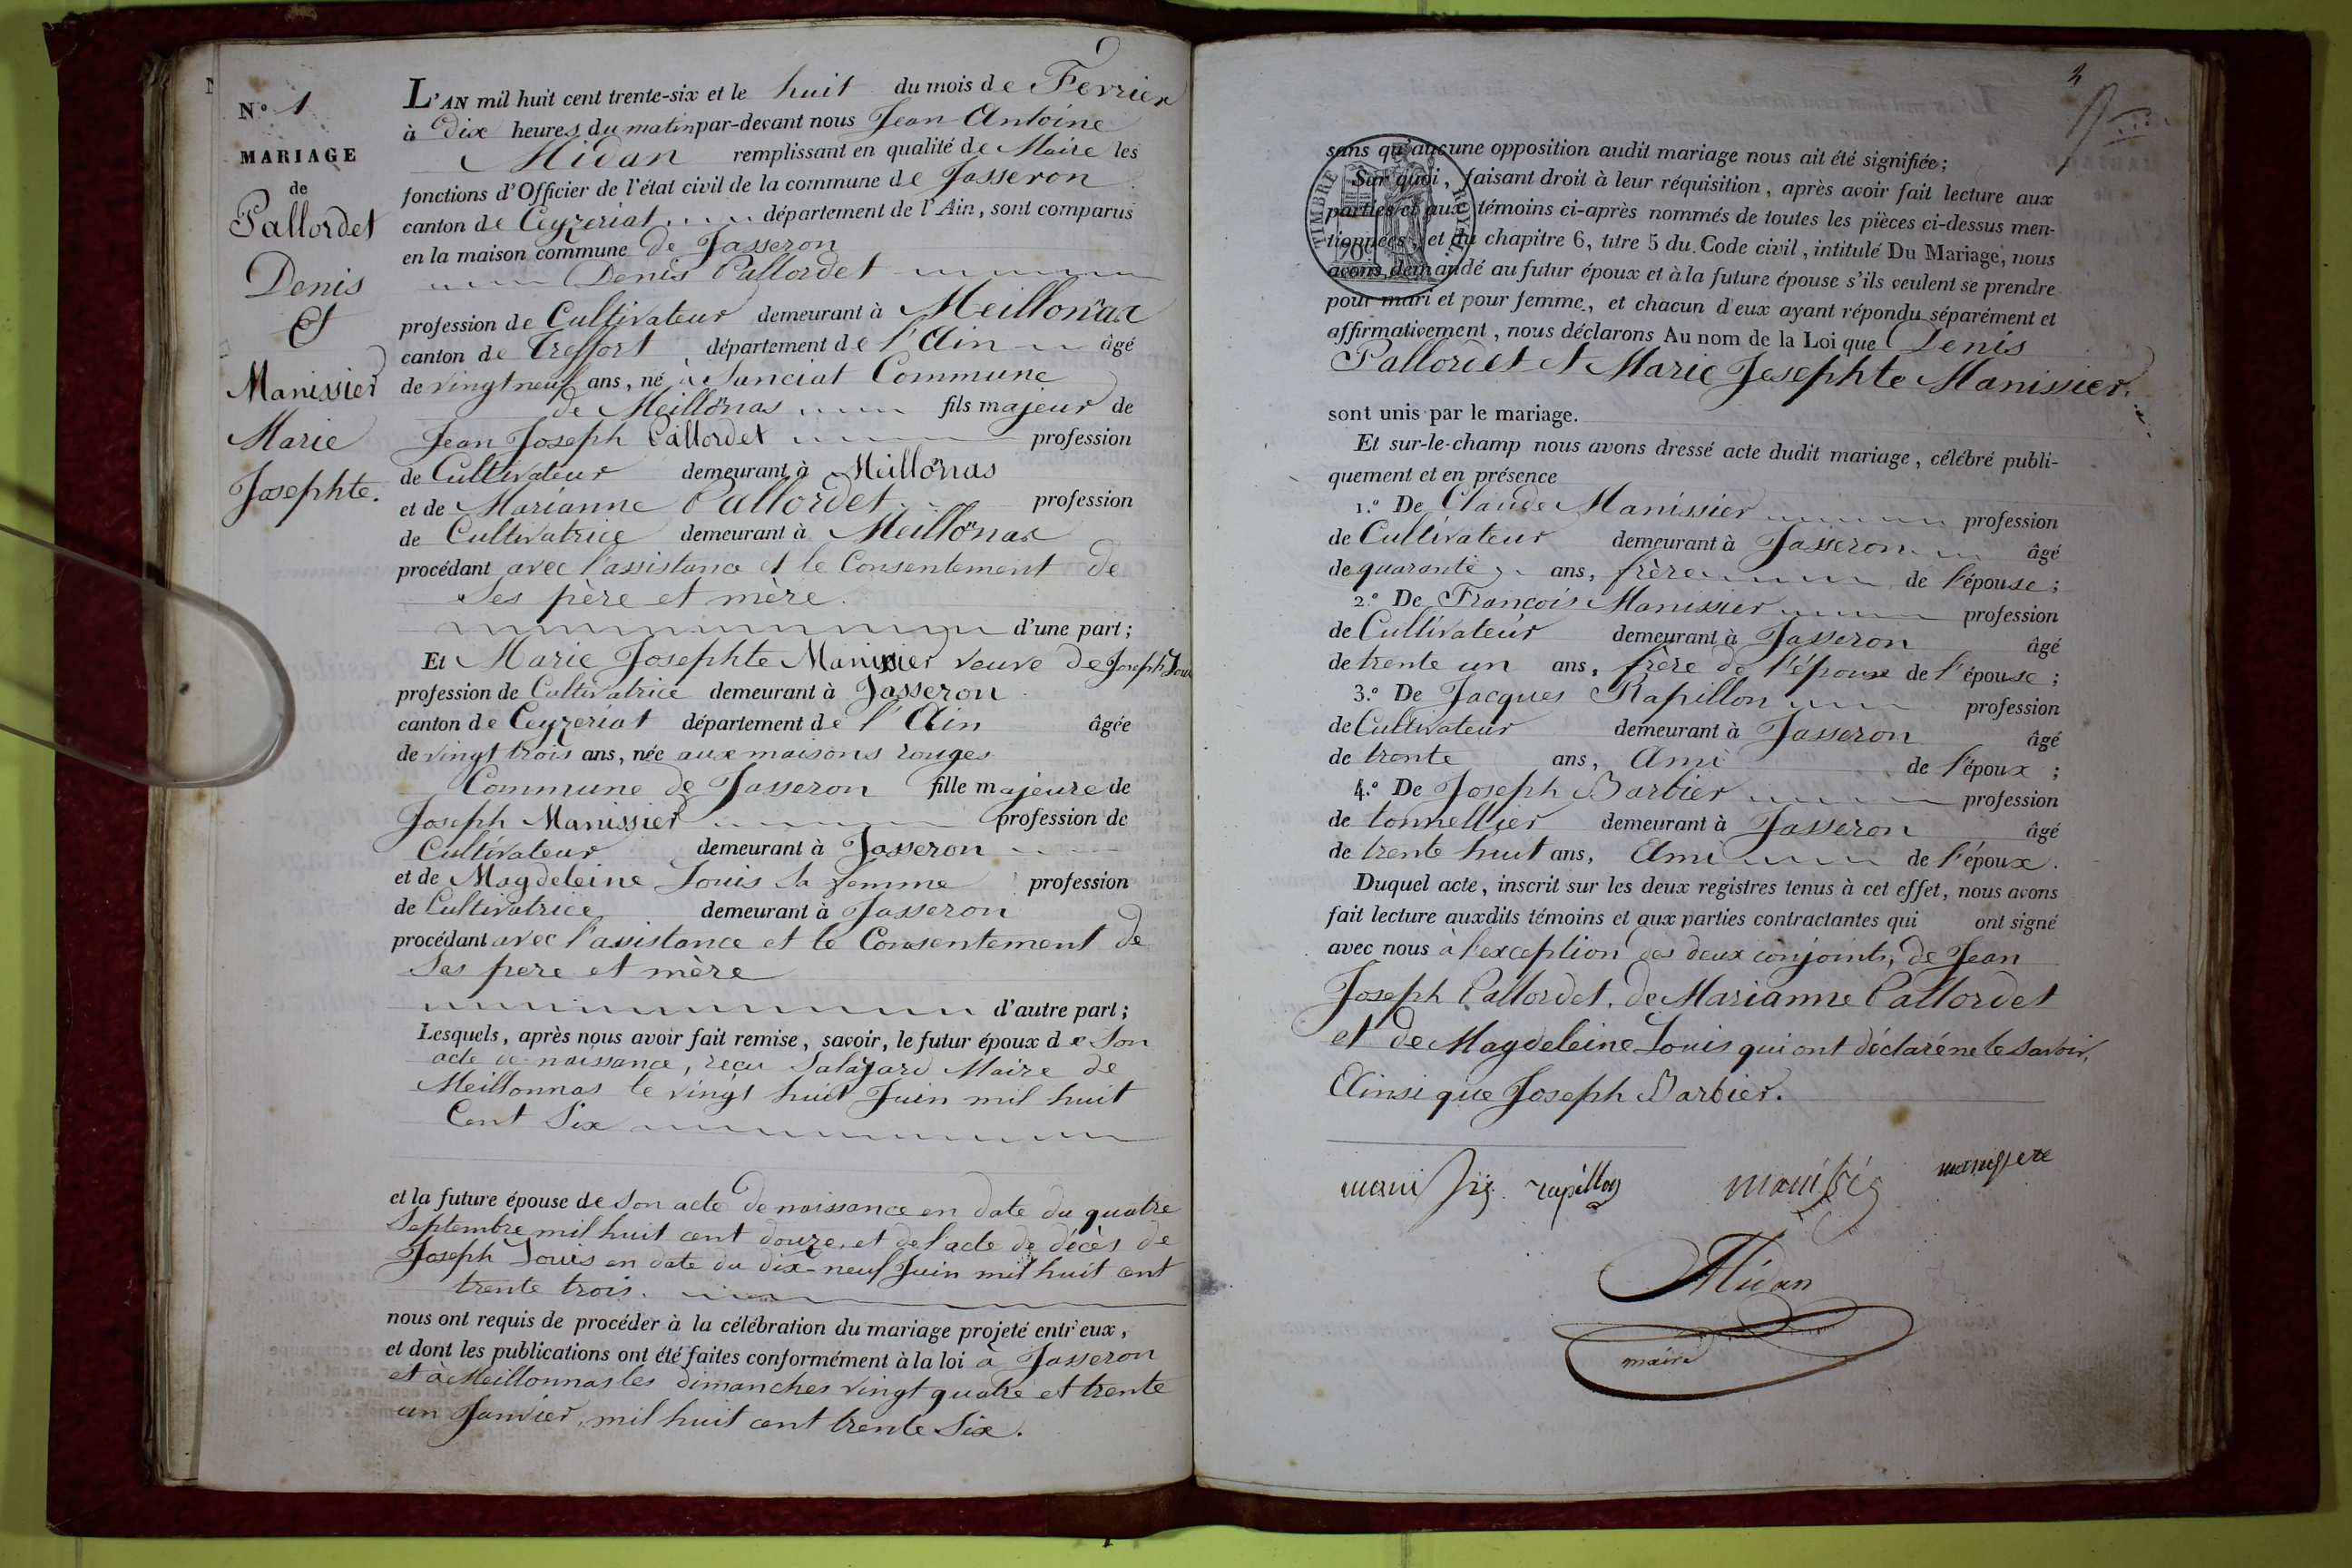 N.º 1
MARIAGE
de
Pallordet
Denis
Et
Manissier
Marie
Josephte.
L'AN mil huit cent trente-six et le huit du mois de Fevrier
à Dix heures du matin par-devant nous Jean Antoine
Midan remplissant en qualité de Maire les
fonctions d'Officier de l'état civil de la commune de Jasseron
canton de Ceyzeriat département de l'Ain, sont comparus
en la maison commune de Jasseron
Denis Pallordet
profession de Cultivateur demeurant à Meillonnas
canton de Treffort département de l'Ain âgé
de vingt neuf ans, né à Sanciat Commune
de Meillonas fils majeur de
Jean Joseph Pallordet profession
de Cultivateur demeurant à Meillonas
et de Marianne Pallordet profession
de Cultivatrice demeurant à Meillonas
procédant avec l'assistance et le Consentement de
Ses père et mère.
d'une part;
Et Marie Josephte Manissier veuve de Joseph Louis
profession de Cultivatrice demeurant à Jasseron
canton de Ceyzeriat département de l'Ain âgée
de vingt trois ans, née aux maisons rouges
Commune de Jasseron fille majeure de
Joseph Manissier profession de
Cultivateur demeurant à Jasseron
et de Magdeleine Louis Sa femme profession
de Cultivatrice demeurant à Jasseron
procédant avec l'assistance et le Consentement de
Ses pere et mère
d'autre part;
Lesquels, après nous avoir fait remise, savoir, le futur époux de Son
acte de naissance, reçu Salazard Maire de
Meillonnas le vingt huit Juin mil huit
Cent Six
et la future épouse de Son acte de naissance en date du quatre
Septembre mil huit cent douze, et de l'acte de décès de
Joseph Louis en date du dix-neuf Juin mil huit cent
trente trois.
nous ont requis de procéder à la célébration du mariage projeté entr'eux,
et dont les publications ont été faites conformément à la loi à Jasseron
et à Meillonnas les dimanches vingt quatre et trente
un Janvier, mil huit cent trente Six.
TIMBRE ROYAL
70c
sans qu'aucune opposition audit mariage nous ait été signifiée;
Sur quoi, faisant droit à leur réquisition, après avoir fait lecture aux
parties et aux témoins ci-après nommés de toutes les pièces ci-dessus men-
tionnées, et du chapitre 6, titre 5 du Code civil, intitulé Du Mariage, nous
avons demandé au futur époux et à la future épouse s'ils veulent se prendre
pour mari et pour femme, et chacun d'eux ayant répondu séparément et
affirmativement, nous déclarons Au nom de la Loi que Denis
Pallordet et Marie Josephte Manissier.
sont unis par le mariage.
Et sur-le-champ nous avons dressé acte dudit mariage, célébré publi-
quement et en présence
1.º De Claude Manissier profession
de Cultivateur demeurant à Jasseron âgé
de quarante ans, frère de l'épouse;
2.º De François Manissier profession
de Cultivateur demeurant à Jasseron âgé
de trente un ans, frère de l'épouse de l'épouse;
3.º De Jacques Rapillon profession
de Cultivateur demeurant à Jasseron âgé
de trente ans, Ami de l'époux;
4.º De Joseph Barbier profession
de tonnellier demeurant à Jasseron âgé
de trente huit ans, Ami de l'époux.
Duquel acte, inscrit sur les deux registres tenus à cet effet, nous avons
fait lecture auxdits témoins et aux parties contractantes qui ont signé
avec nous à l'exception des deux conjoints, de Jean
Joseph Pallordet, de Marianne Pallordet
et de Magdeleine Louis qui ont déclaré ne le savoir,
Ainsi que Joseph Barbier.
rapillon
Midan
maire